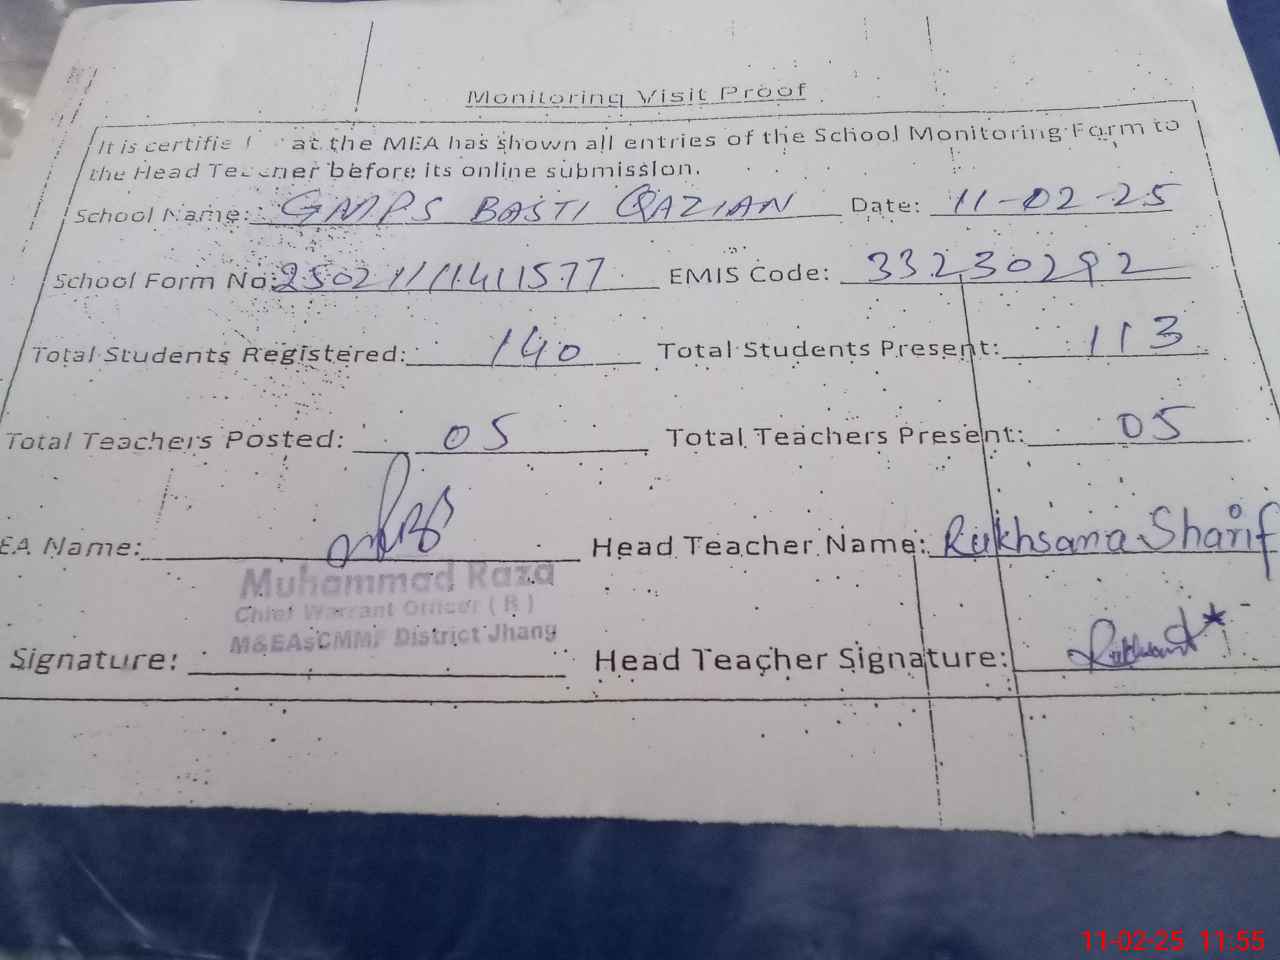 Monitoring Visit Proof
It is certifie at the MEA has shown all entries of the School Monitoring Form to
the Head Teacher before its online submission.
School Name: GMPS BASTI QAZIAN Date: 11-02-25
School Form No: EMIS Code: 33230292
Total Students Registered: 140 Total Students Present: 113
Total Teachers Posted: 05 Total Teachers Present: 05
EA Name: Head Teacher Name: Rukhsana Sharif
Muhammad Raza
Chief Warrant Officer ( R )
M&EAsCMMF District Jhang
Signature: Head Teacher Signature:
11-02-25 11:55